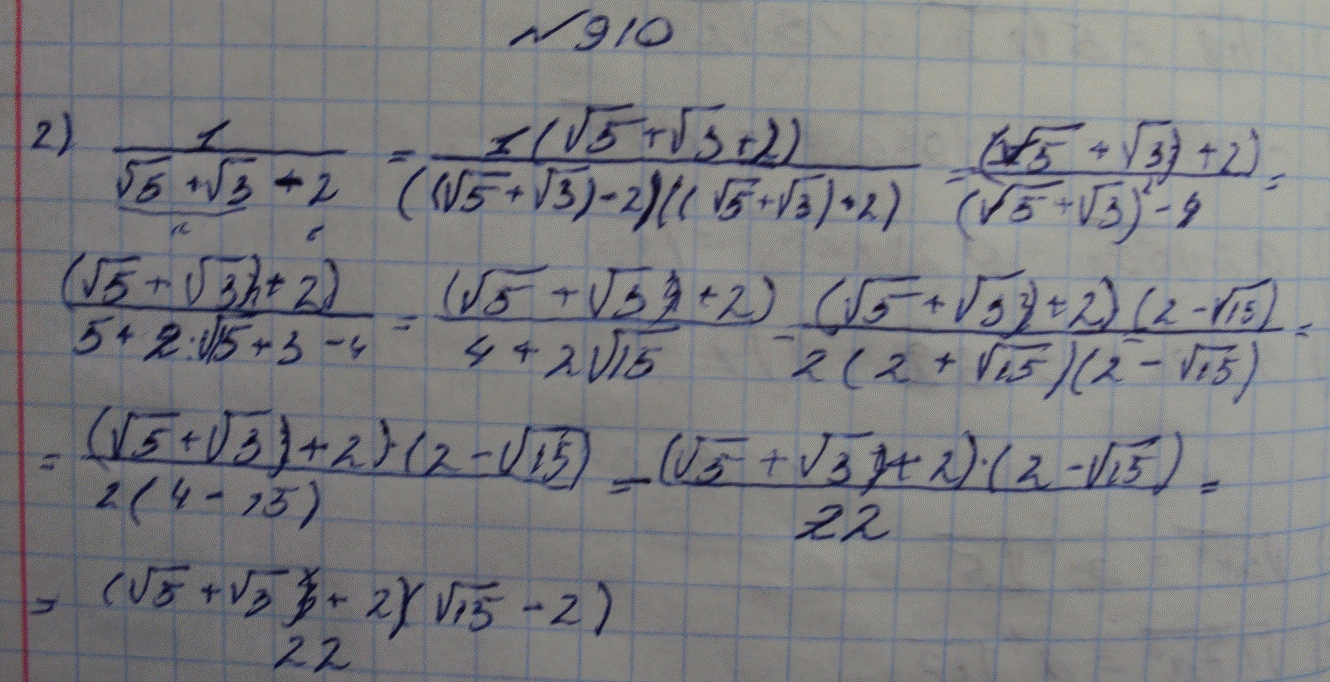 №910
2) 1/(√5 + √3 + 2) = 1(√5 + √3 + 2)/(((√5 + √3) - 2)((√5 + √3) + 2)) = ((√5 + √3) + 2)/((√5 + √3)² - 4) =
((√5 + √3) + 2)/(5 + 2·√15 + 3 - 4) = ((√5 + √3) + 2)/(4 + 2√15) = ((√5 + √3) + 2)(2 - √15)/(2(2 + √15)(2 - √15)) =
= ((√5 + √3) + 2)·(2 - √15)/(2(4 - 15)) = ((√5 + √3) + 2)·(2 - √15)/22 =
= (√5 + √3 + 2)(√15 - 2)/22